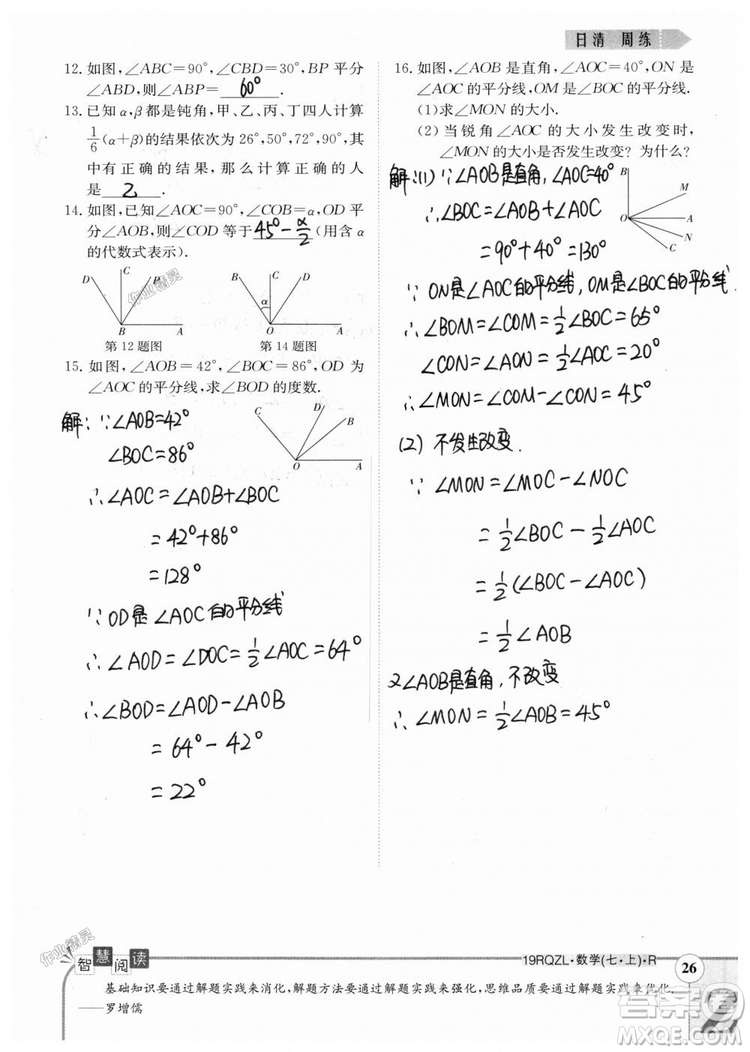 日清 周练
12. 如图,∠ABC=90°,∠CBD=30°,BP 平分
∠ABD,则∠ABP= 60° .
13. 已知 α,β 都是钝角,甲、乙、丙、丁四人计算
1/6(α+β)的结果依次为 26°,50°,72°,90°,其
中有正确的结果,那么计算正确的人
是 乙 .
14. 如图,已知∠AOC=90°,∠COB=α,OD 平
分∠AOB,则∠COD 等于 45°-α/2 (用含 α
的代数式表示).
D C P B A
第 12 题图
D B C α O A
第 14 题图
15. 如图,∠AOB=42°,∠BOC=86°,OD 为
∠AOC 的平分线,求∠BOD 的度数.
C D B O A
解: ∵∠AOB=42°
∠BOC=86°
∴∠AOC=∠AOB+∠BOC
=42°+86°
=128°
∵OD是∠AOC的平分线
∴∠AOD=∠DOC=1/2∠AOC=64°
∴∠BOD=∠AOD-∠AOB
=64°-42°
=22°
16. 如图,∠AOB 是直角,∠AOC=40°,ON 是
∠AOC 的平分线,OM 是∠BOC 的平分线.
(1)求∠MON 的大小.
(2)当锐角∠AOC 的大小发生改变时,
∠MON 的大小是否发生改变? 为什么?
B M A N C O
解:(1)∵∠AOB是直角,∠AOC=40°
∴∠BOC=∠AOB+∠AOC
=90°+40°=130°
∵ON是∠AOC的平分线,OM是∠BOC的平分线.
∴∠BOM=∠COM=1/2∠BOC=65°
∠CON=∠AON=1/2∠AOC=20°
∴∠MON=∠COM-∠CON=45°
(2)不发生改变.
∵∠MON=∠MOC-∠NOC
=1/2∠BOC-1/2∠AOC
=1/2(∠BOC-∠AOC)
=1/2∠AOB
又∠AOB是直角,不改变
∴∠MON=1/2∠AOB=45°
作业精灵
作业精灵
智慧阅读
19RQZL·数学(七·上)·R
26
基础知识要通过解题实践来消化,解题方法要通过解题实践来强化,思维品质要通过解题实践来优化.
——罗增儒